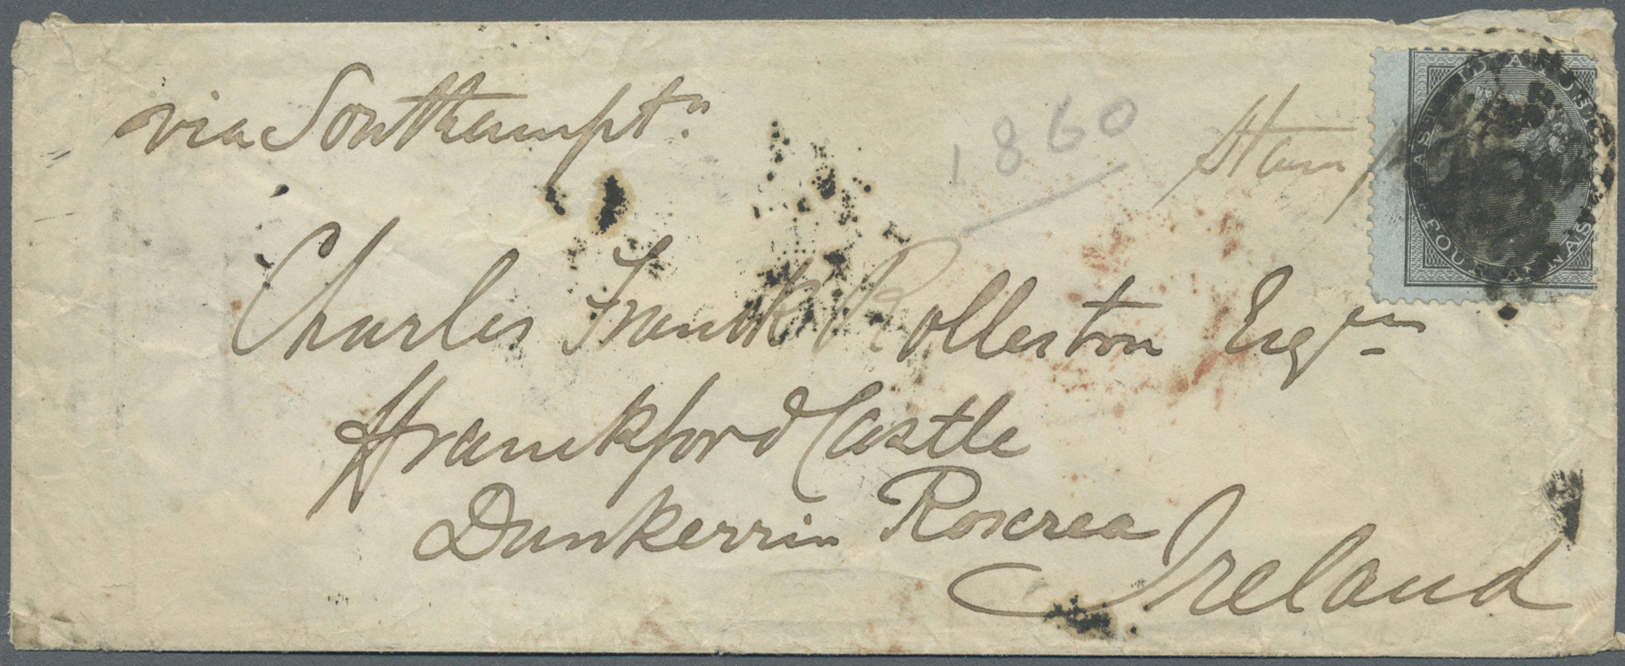 via Southampt.n
1860
Stamp
EAST INDIA POSTAGE
FOUR ANNAS
Charles Frank Rolleston Esq.re
Frankford Castle
Dunkerrin Roscrea
Ireland